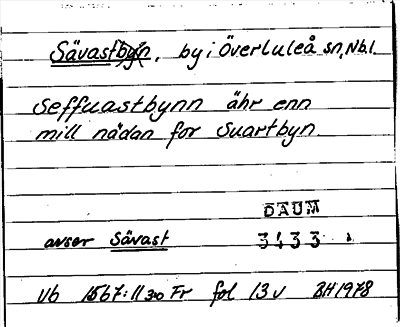 Sävastbyn, by i Överluleå sn, Nb.l.
Seffuastbynn ähr enn
mill nädan for Suartbyn
DAUM
avser Sävast 3433
Vb 1567:11 Fr fol 13 v BH 1978